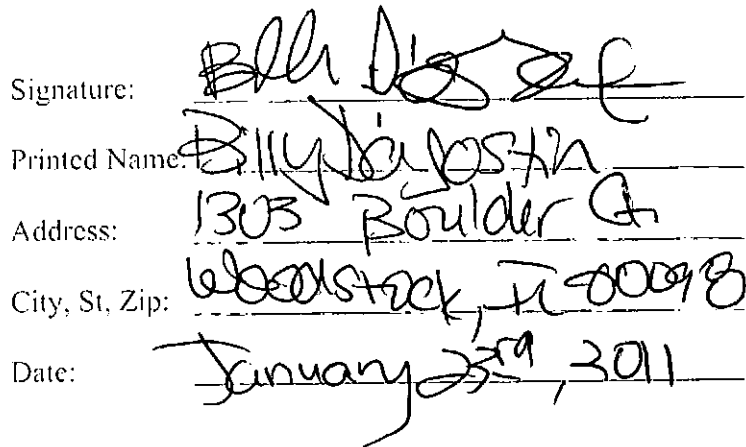 Signature:
Printed Name: Billy D'Agostin
Address: 1303 Boulder Ct
City, St, Zip: Woodstock, IL 60098
Date: January 23rd, 2011